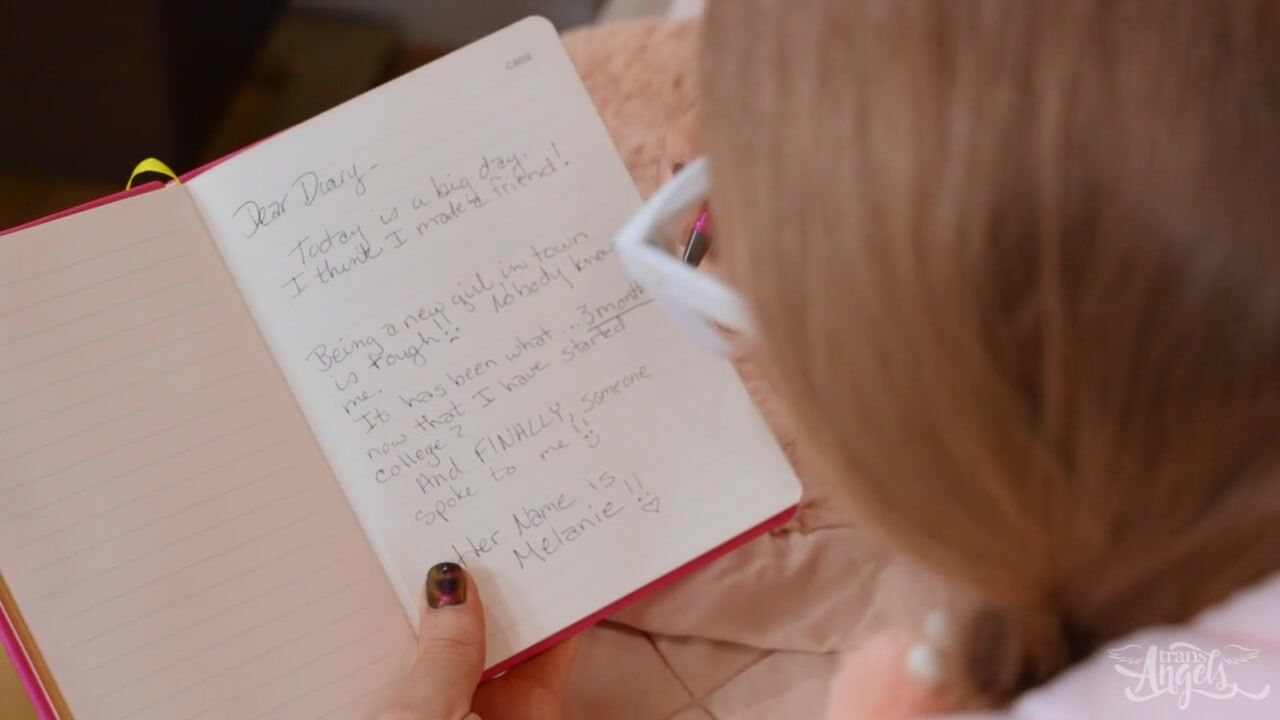 Dear Diary-
Today is a big day.
I think I made a friend!
Being a new girl in town
is rough!! Nobody know
me.
It has been what... 3 month
now that I have started
college?
And FINALLY, someone
spoke to me!!
Her Name is
Melanie!!
trans
Angels